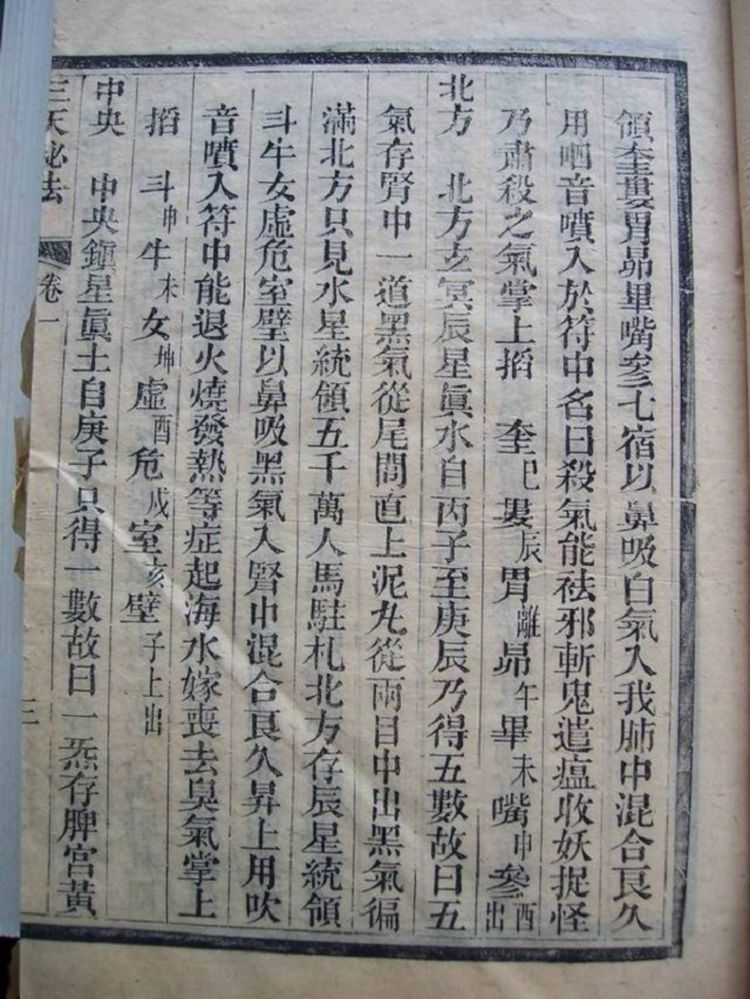 領奎婁胃昴畢嘴參七宿以鼻吸白氣入我肺中混合良久
用呬音噴入於符中名曰殺氣能祛邪斬鬼遣瘟收妖捉怪
乃肅殺之氣掌上掐 奎巳婁辰胃離昴午畢未嘴申參酉出
北方 北方玄冥辰星眞水自丙子至庚辰乃得五數故曰五
氣存腎中一道黑氣從尾閭直上泥丸從兩目中出黑氣徧
滿北方只見水星統領五千萬人馬駐札北方存辰星統領
斗牛女虛危室壁以鼻吸黑氣入腎中混合良久昇上用吹
音噴入符中能退火燒發熱等症起海水嫁喪去臭氣掌上
掐 斗申牛未女坤虛酉危戌室亥壁子上出
中央 中央鎭星眞土自庚子只得一數故曰一炁存脾宮黃
三天祕法 卷一 三